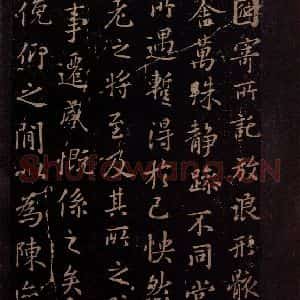 因寄所託放浪形骸
舍萬殊靜躁不同當
所遇暫得於己怏然
老之將至及其所之
事遷感慨係之矣
俛仰之間以為陳
Shufawang.CN